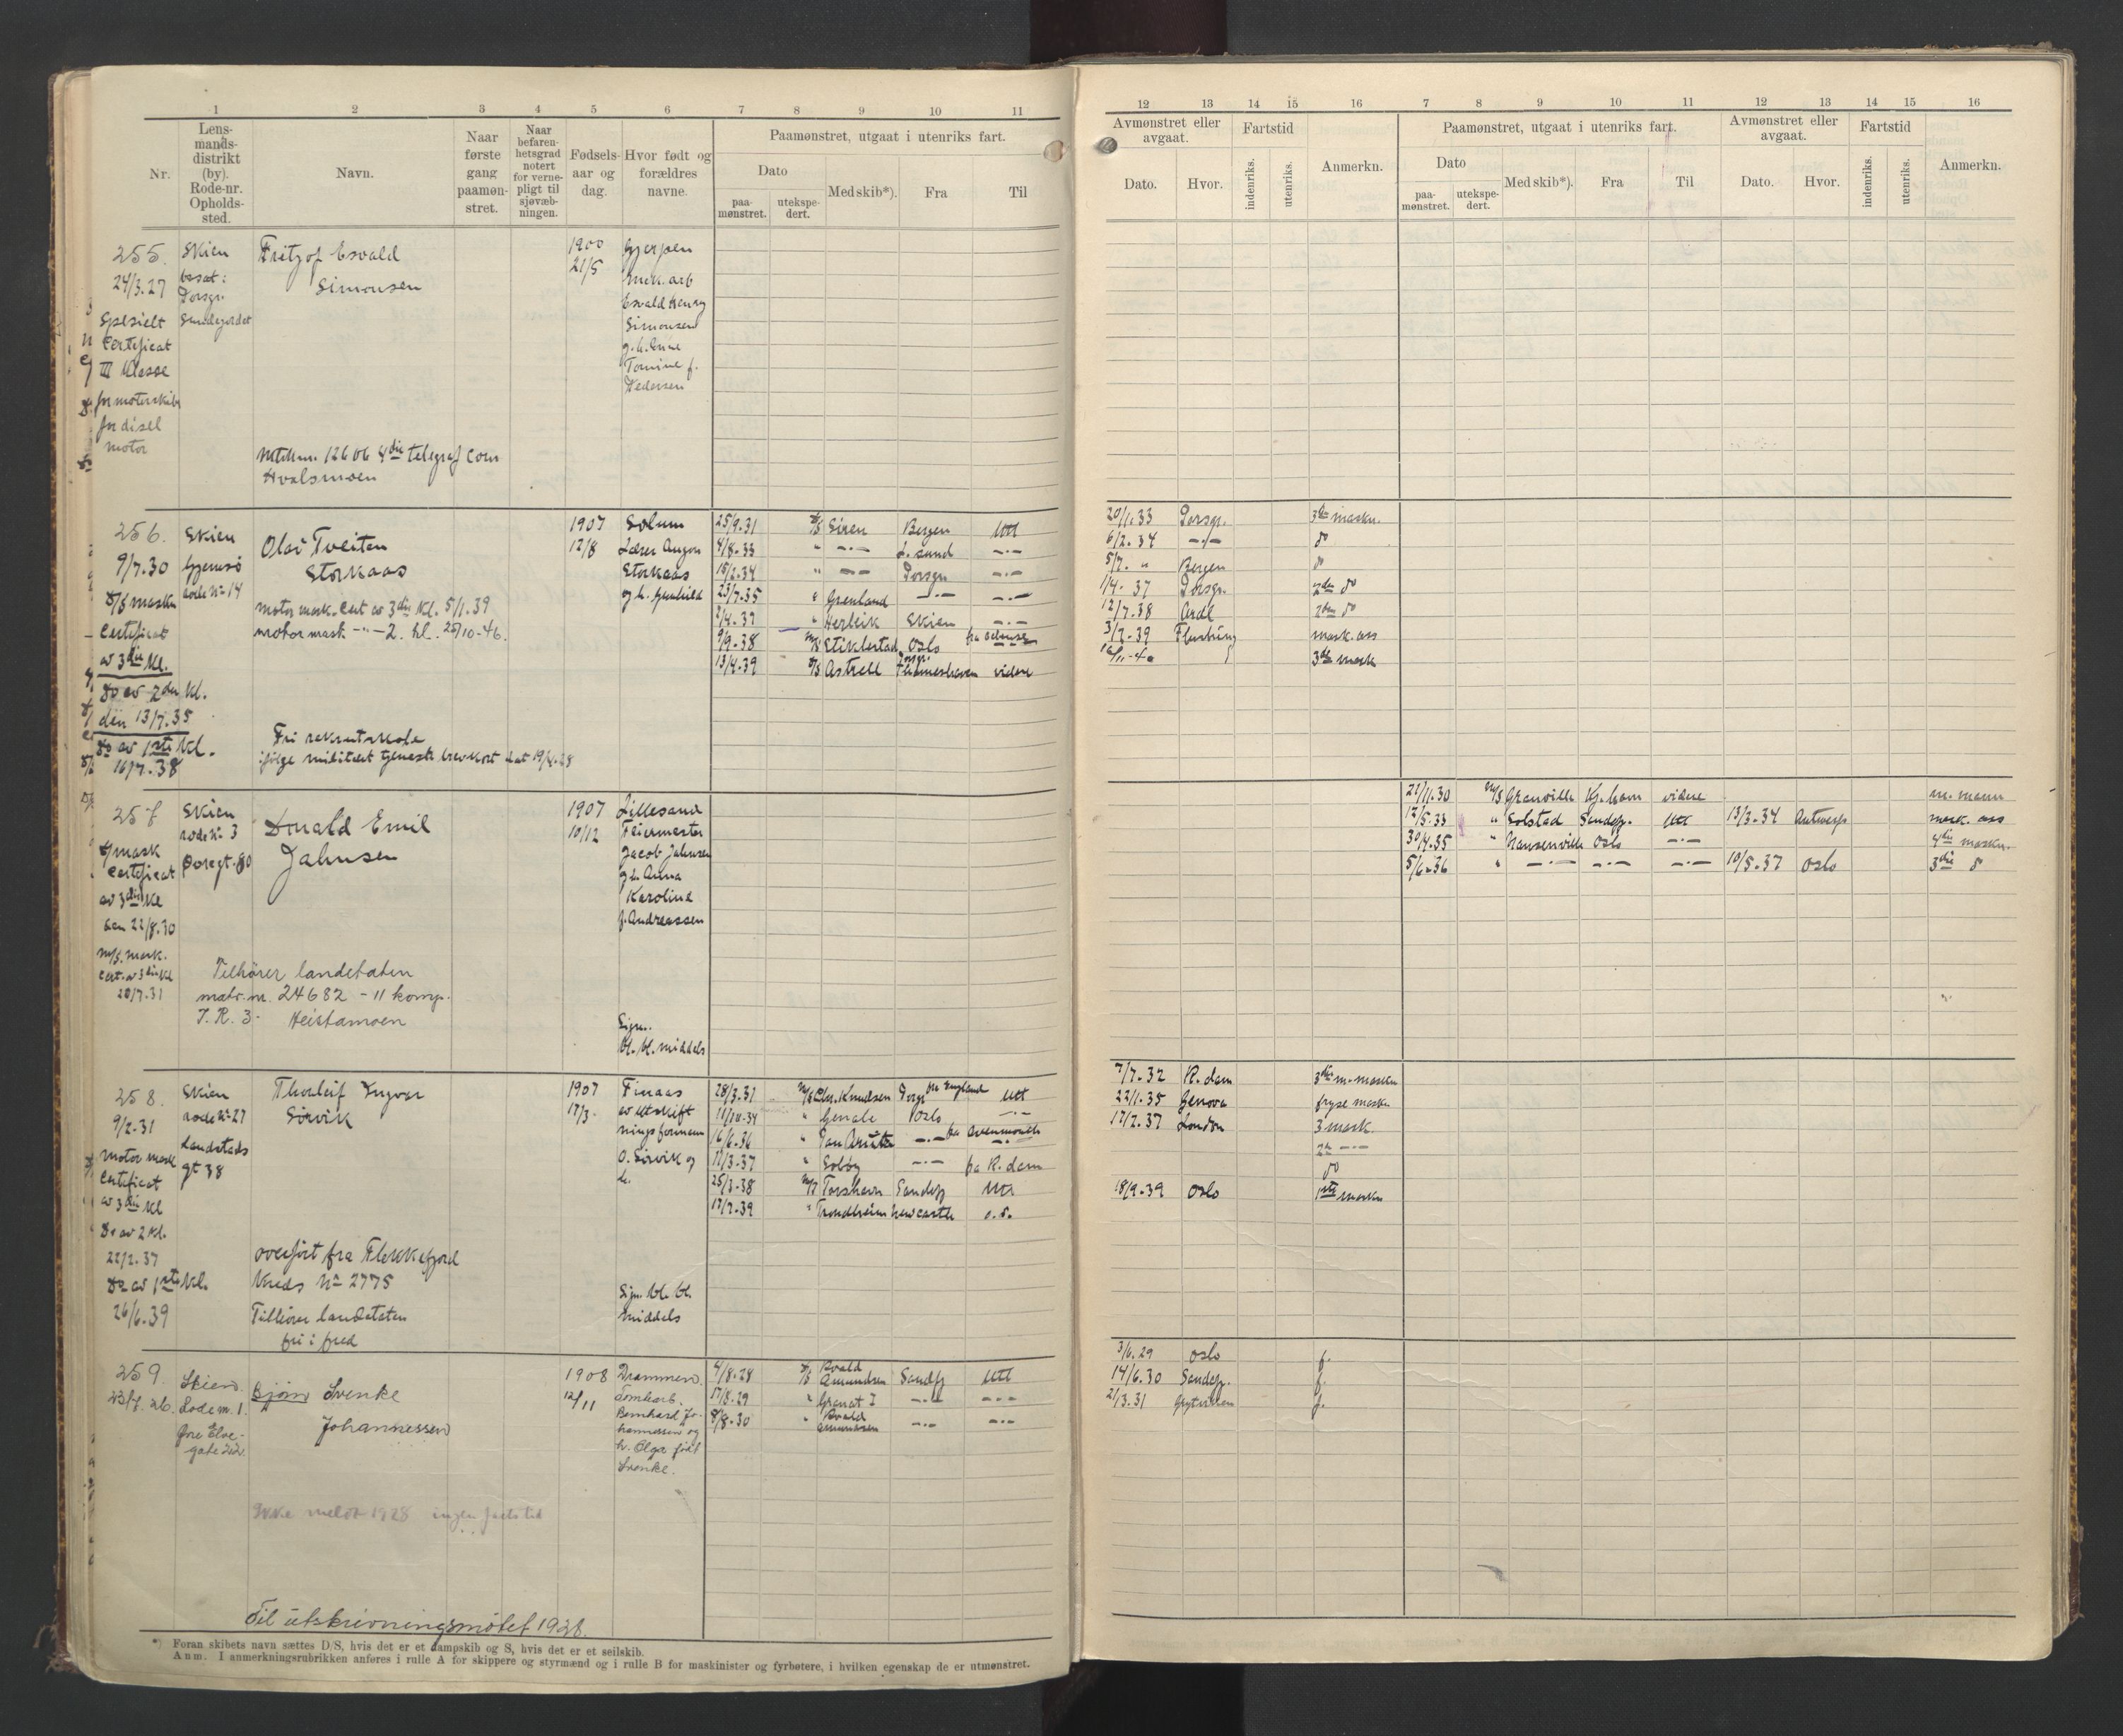 1 2 3 4 5 6 7 8 9 10 11
Nr.
Lens-
mands-
distrikt
(by).
Rode-nr.
Opholds-
sted.
Navn.
Naar
første
gang
paamøn-
stret.
Naar
befaren-
hetsgrad
notert
for verne-
pligt til
sjøvæb-
ningen.
Fødsels-
aar og
dag.
Hvor født og
forældres
navne.
Paamønstret, utgaat i utenriks fart.
Dato
paa-
mønstret.
utekspe-
dert.
Med skib*).
Fra
Til
12 13 14 15 16 7 8 9 10 11 12 13 14 15 16
Avmønstret eller
avgaat.
Dato.
Hvor.
Fartstid
indenriks.
utenriks.
Anmerkn.
Paamønstret, utgaat i utenriks fart.
Dato
paa-
mønstret.
utekspe-
dert.
Med skib*).
Fra
Til
Avmønstret eller
avgaat.
Dato.
Hvor.
Fartstid
indenriks.
utenriks.
Anmerkn.
255.
24/3.27
Spesielt
Certificat
III Klasse
for motorskibe
for disel
motor
Skien
bosat:
Porsgr.
Sandejordet
Fritzof Esvald
Simonsen
1900
21/5
Gjerpen
mek. arb
Esvald Henry
Simonsen
Tomine f.
Pedersen
12606 4de telegraf com
Hvalsmoen
256.
9/7.30
D/S maskn
Certificat
av 3die Kl.
Do av 2den Kl.
den 13/7.35
Do av 1ste Kl.
16/7.38
Skien
Gjemsø
rode No 14
Olav Tveiten
Storkaas
motor mask. cert av 3die Kl. 5/1.39
motor mask -"- 2. kl. 25/10-46.
Fri rekrutskole
ifølge militært tjeneste brevkort dat 19/4.28
1907
12/8
Solum
Storkaas
og h. Gunhild
25/9.31 D/S Siren Bergen Utl
4/8.33 " -"- L.sund -"-
15/2.34 " -"- Porsgr -"-
23/7.35 " Grenland -"- -"-
2/4.37 " Herleik Skien -"-
9/9.38 M/S Stiklestad Oslo
13/4.39 D/S Astrell Thameshaven videre
20/1.33 Porsgr. 3die maskn.
6/2.34 -"- do
5/7. " Bergen do
1/4-37 Porsgr. 2den do
12/7.38 2den do
3/2-39 Flensburg mask. ass
3die mask
257
D/S mask
Certificat
av 3die Kl
den 22/8.30
m/s. mask.
Cert. av 3die Kl
20/7.31
Skien
rode No 3
Donald Emil
Jahnsen
Tilhører landetaten
matr. nr. 24682 - 11 komp.
I. R. 3. Heistamoen
1907
10/12
Lillesand
Feiermester
Jacob Jahnsen
og h. Anna
Karoline
f. Andreassen
Sign.
bl. bl. middels
21/11.30 M/S Granville Kj.havn videre m. mann
12/5.33 " Solstad Sandefj. Utl 13/3.34 Antwerp mask. ass
30/4.35 " Hansenville Oslo -"- 4de maskn.
5/6.36 " -"- -"- -"- 10/5.37 Oslo 3die do
258.
9/2.31
motor mask
Certificat
av 3die Kl
Do av 2 Kl.
22/2.37
Do av 1ste Kl.
26/6.39
Skien
rode No 27
Landstads
gt 38
Thorleif Ingvar
Sirvik
overført fra Flekkefjord
Kreds No 2775
Tilhører landetaten
fri i fred
1907
17/3.
Finaas
av utskift
ningsformann
O. Sirvik og
h.
Sign. bl. bl.
middels
28/3.31 M/S Chr. Knudsen Porsgr fra England Utl
11/10-34 " Genale Oslo -"-
16/6.36 -"- fra Avenmouth
17/3-37 " Solböy -"- fra R.dam
25/3-38 M/T Torshavn Sandefj Utl
17/7.39 " Trondheim Newcastle
7/7.32 R.dam 3die m-maskn
22/1.35 Genova fryse maskn
17/2.37 London 3 mask.
2den -"-
do
18/9.39 Oslo 1ste maskn
259.
23/7.26.
Skien.
Rode nr. 1.
Øvre Elve-
gate
Bjørn Svenke
Johannessen
Ikke meldt 1928 ingen fartstid
Til utskrivningsmøtet 1928.
1908
12/11
Drammen.
Tomtearb.
Bernhard Jo-
hannessen og
h. Olga født
Svenke.
4/8.28 D/S Roald Amundsen Sandefj Utl
17/8.29 " Granat I -"- -"-
8/8.30 " Roald Amundsen -"- -"-
3/6.29 Oslo f.
14/6.30 Sandefj. f.
21/3.31 f.
*) Foran skibets navn sættes D/S, hvis det er et dampskib og S, hvis det er et seilskib.
Anm. I anmerkningsrubrikken anføres i rulle A for skippere og styrmænd og i rulle B for maskinister og fyrbøtere, i hvilken egenskap de er utmønstret.